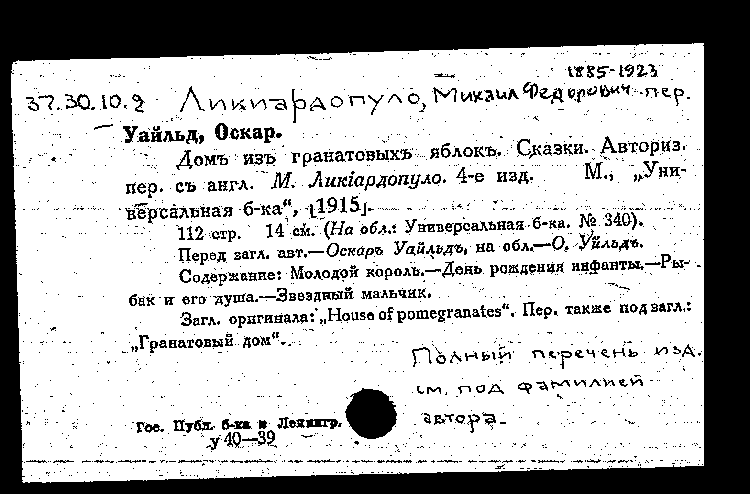 1885-1923
37.30.10.2 Ликиардопуло, Михаил Федорович пер.
Уайльд, Оскар.
Домъ изъ гранатовыхъ яблокъ. Сказки. Авториз.
пер. съ англ. М. Ликіардопуло. 4-е изд. М., „Уни-
версальная б-ка“, [1915].
112 стр. 14 см. (На обл.: Универсальная б-ка. № 340).
Перед загл. авт.—Оскаръ Уайльдъ, на обл.—О. Уйльдъ.
Содержание: Молодой король.—День рождения инфанты.—Ры-
бак и его душа.—Звездный мальчик.
Загл. оригинала: „House of pomegranates“. Пер. также под загл.:
„Гранатовый дом“.
Полный перечень изд.
см. под фамилией
автора.
Гос. Публ. б-ка в Ленингр.
у 40—39